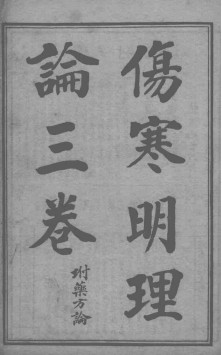 傷寒明理
論三卷
坿藥方論